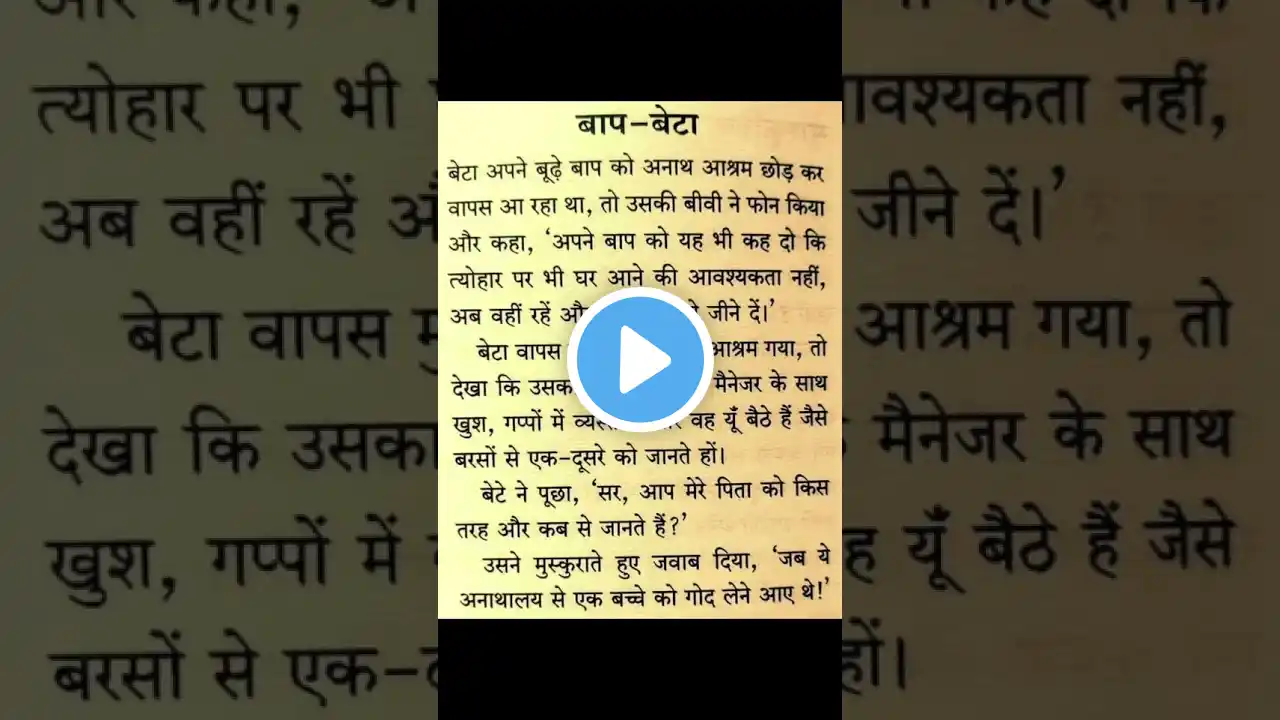 बाप-बेटा
बेटा अपने बूढ़े बाप को अनाथ आश्रम छोड़ कर
वापस आ रहा था, तो उसकी बीवी ने फोन किया
और कहा, ‘अपने बाप को यह भी कह दो कि
त्योहार पर भी घर आने की आवश्यकता नहीं,
अब वहीं रहें जीने दें।’
बेटा वापस आश्रम गया, तो
देखा कि मैनेजर के साथ
खुश, गप्पों में वह यूँ बैठे हैं जैसे
बरसों से एक-दूसरे को जानते हों।
बेटे ने पूछा, ‘सर, आप मेरे पिता को किस
तरह और कब से जानते हैं?’
उसने मुस्कुराते हुए जवाब दिया, ‘जब ये
अनाथालय से एक बच्चे को गोद लेने आए थे!’